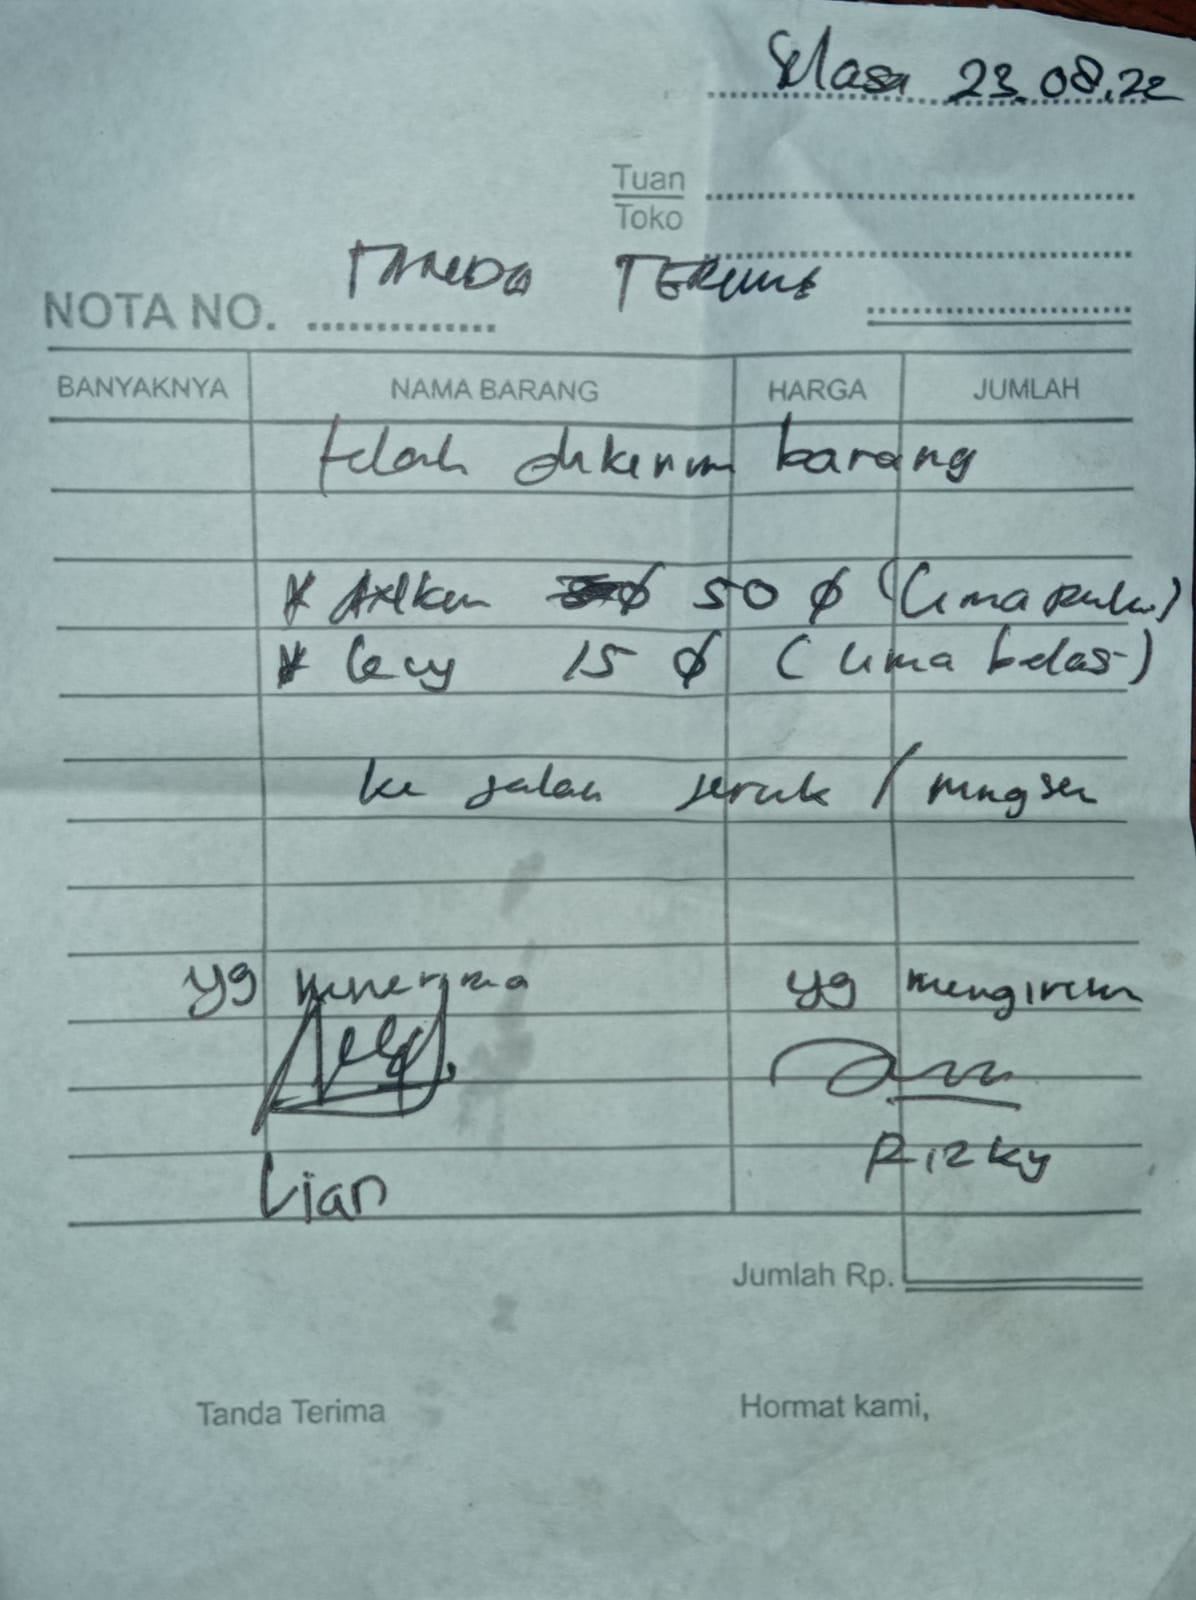 Selasa 23.08.22
Tuan
Toko
TANDA TERIMA
NOTA NO.
BANYAKNYA NAMA BARANG HARGA JUMLAH
telah dikirim barang
* 50 ∅ (lima puluh)
* 15 ∅ (lima belas)
ke jalan jeruk /
yg menerima yg mengirim
Rizky
Lian
Jumlah Rp.
Tanda Terima Hormat kami,